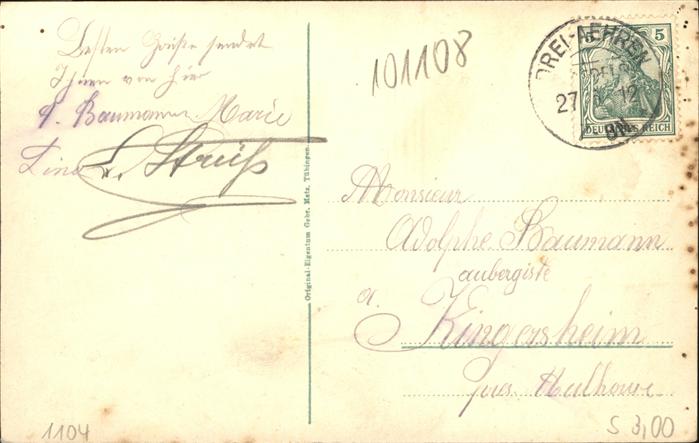 Besten Grüße sendet
Ihnen von hier
A. Baumann Marie
Lina
E. Strub
101108
DREI-AEHREN
27 12
5
DEUTSCHES REICH
Original-Eigentum Gebr. Metz, Tübingen
Monsieur
Adolphe Baumann
aubergiste
a.
Kingersheim
près Mulhouse
1104
S 3,00